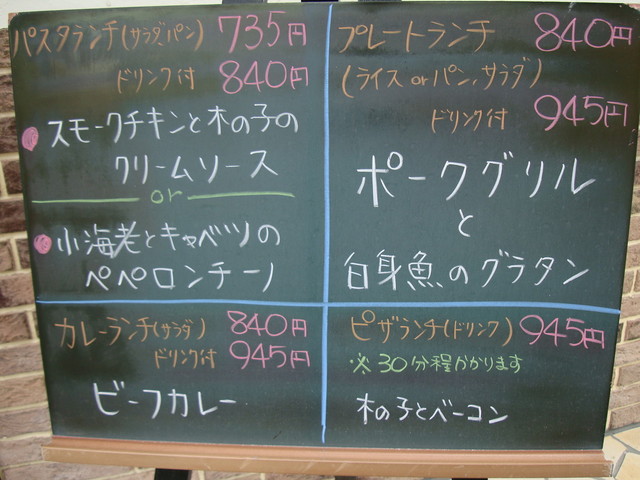 パスタランチ(サラダ,パン) 735円
ドリンク付 840円
スモークチキンと木の子の
クリームソース
or
小海老とキャベツの
ペペロンチーノ
プレートランチ 840円
(ライス or パン,サラダ)
ドリンク付 945円
ポークグリル
と
白身魚のグラタン
カレーランチ(サラダ) 840円
ドリンク付 945円
ビーフカレー
ピザランチ(ドリンク) 945円
※30分程かかります
木の子とベーコン